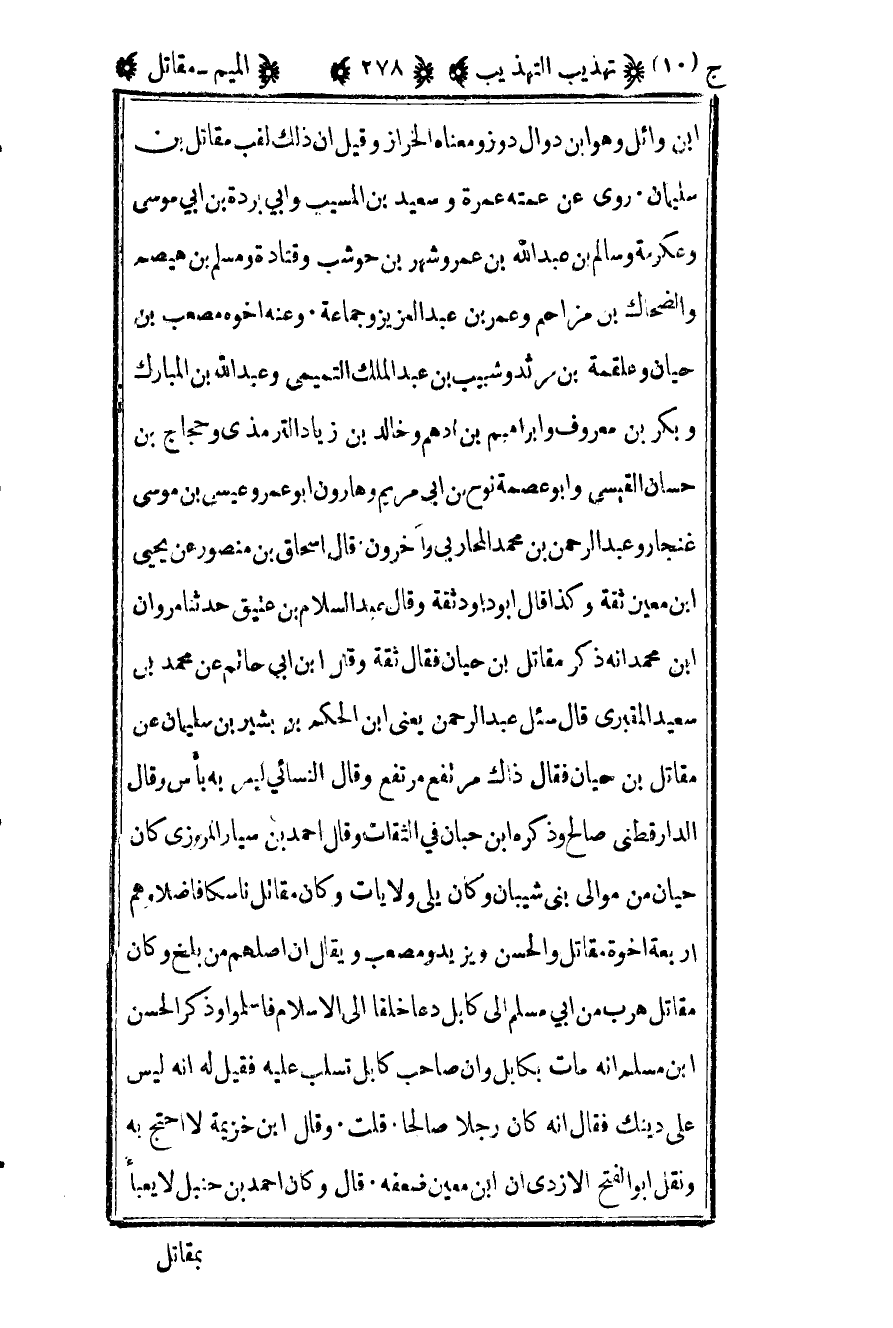 ج (١٠) تهذيب التهذيب ٢٧٨ الميم - مقاتل
ابن وائل وهو ابن دوال دوز ومعناه الخراز وقيل ان ذلك لقب مقاتل بن
سليمان · روى عن عمته عمرة و سعيد بن المسيب وابي بردة بن ابي موسى
وعكرمة وسالم بن عبدالله بن عمرو شهر بن حوشب وقتادة ومسلم بن هيصم
والضحاك بن مزاحم وعمر بن عبدالعزيز وجماعة · وعنه اخوه مصعب بن
حيان وعلقمة بن مرثد وشبيب بن عبدالملك التميمى وعبدالله بن المبارك
و بكر بن معروف وابراهيم بن ادهم وخالد بن زياد الترمذى وحجاج بن
حسان القيسى وابو عصمة نوح بن ابى مريم وهارون ابو عمرو عيسى بن موسى
غنجار وعبدالرحمن بن محمد المحاربي وآخرون · قال اسحاق بن منصور عن يحيى
ابن معين ثقة وكذا قال ابو داود ثقة وقال عبد السلام بن عتيق حدثنا مروان
ابن محمد انه ذكر مقاتل بن حيان فقال ثقة وقال ابن ابي حاتم عن محمد بن
سعيد المقبرى قال سئل عبدالرحمن يعنى ابن الحكم بن بشير بن سليمان عن
مقاتل بن حيان فقال ذاك مرتفع مرتفع وقال النسائي ليس به بأس وقال
الدارقطنى صالح وذكره ابن حبان في الثقات وقال احمد بن سيار المروزى كان
حيان من موالى بنى شيبان وكان يلى ولايات وكان مقاتل ناسكا فاضلا وهم
اربعة اخوة مقاتل والحسن ويزيد ومصعب ويقال ان اصلهم من بلخ وكان
مقاتل هرب من ابي مسلم الى كابل دعا خلقا الى الاسلام فاسلموا وذكر الحسن
ابن مسلم انه مات بكابل وان صاحب كابل تسلب عليه فقيل له انه ليس
على دينك فقال انه كان رجلا صالحا · قلت · وقال ابن خزيمة لا احتج به
ونقل ابو الفتح الازدى ان ابن معين ضعفه · قال وكان احمد بن حنبل لا يعبأ
بمقاتل